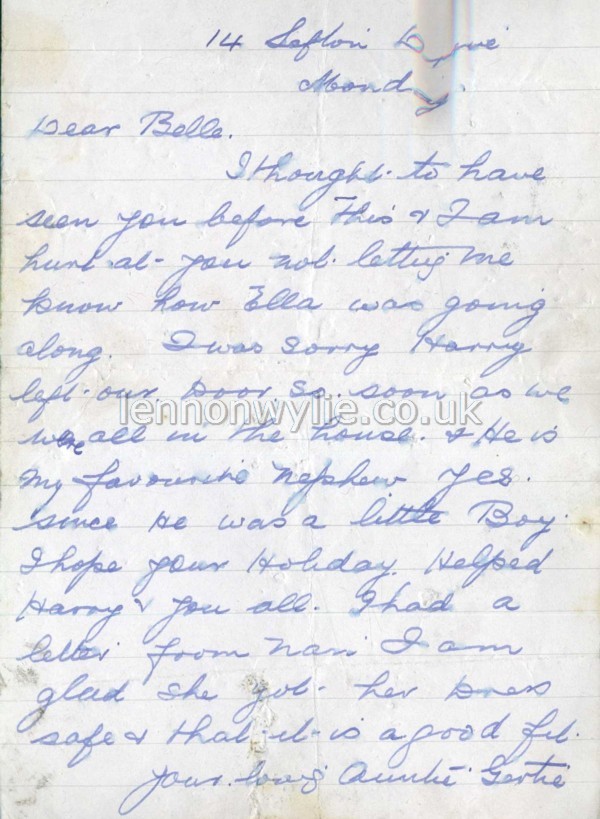 14 Sefton Drive
Monday.
Dear Belle.
I thought to have
seen you before This & I am
hurt at you not letting me
know how Ella was going
along. I was sorry Harry
left our Door so soon as we
were all in the house. & He is
my favourite Nephew yes.
since He was a little Boy.
I hope your Holiday. Helped
Harry & you all. I had a
letter from Nan I am
glad she got her Dress
safe & that it is a good fit.
your loving Auntie Gertie
lennonwylie.co.uk